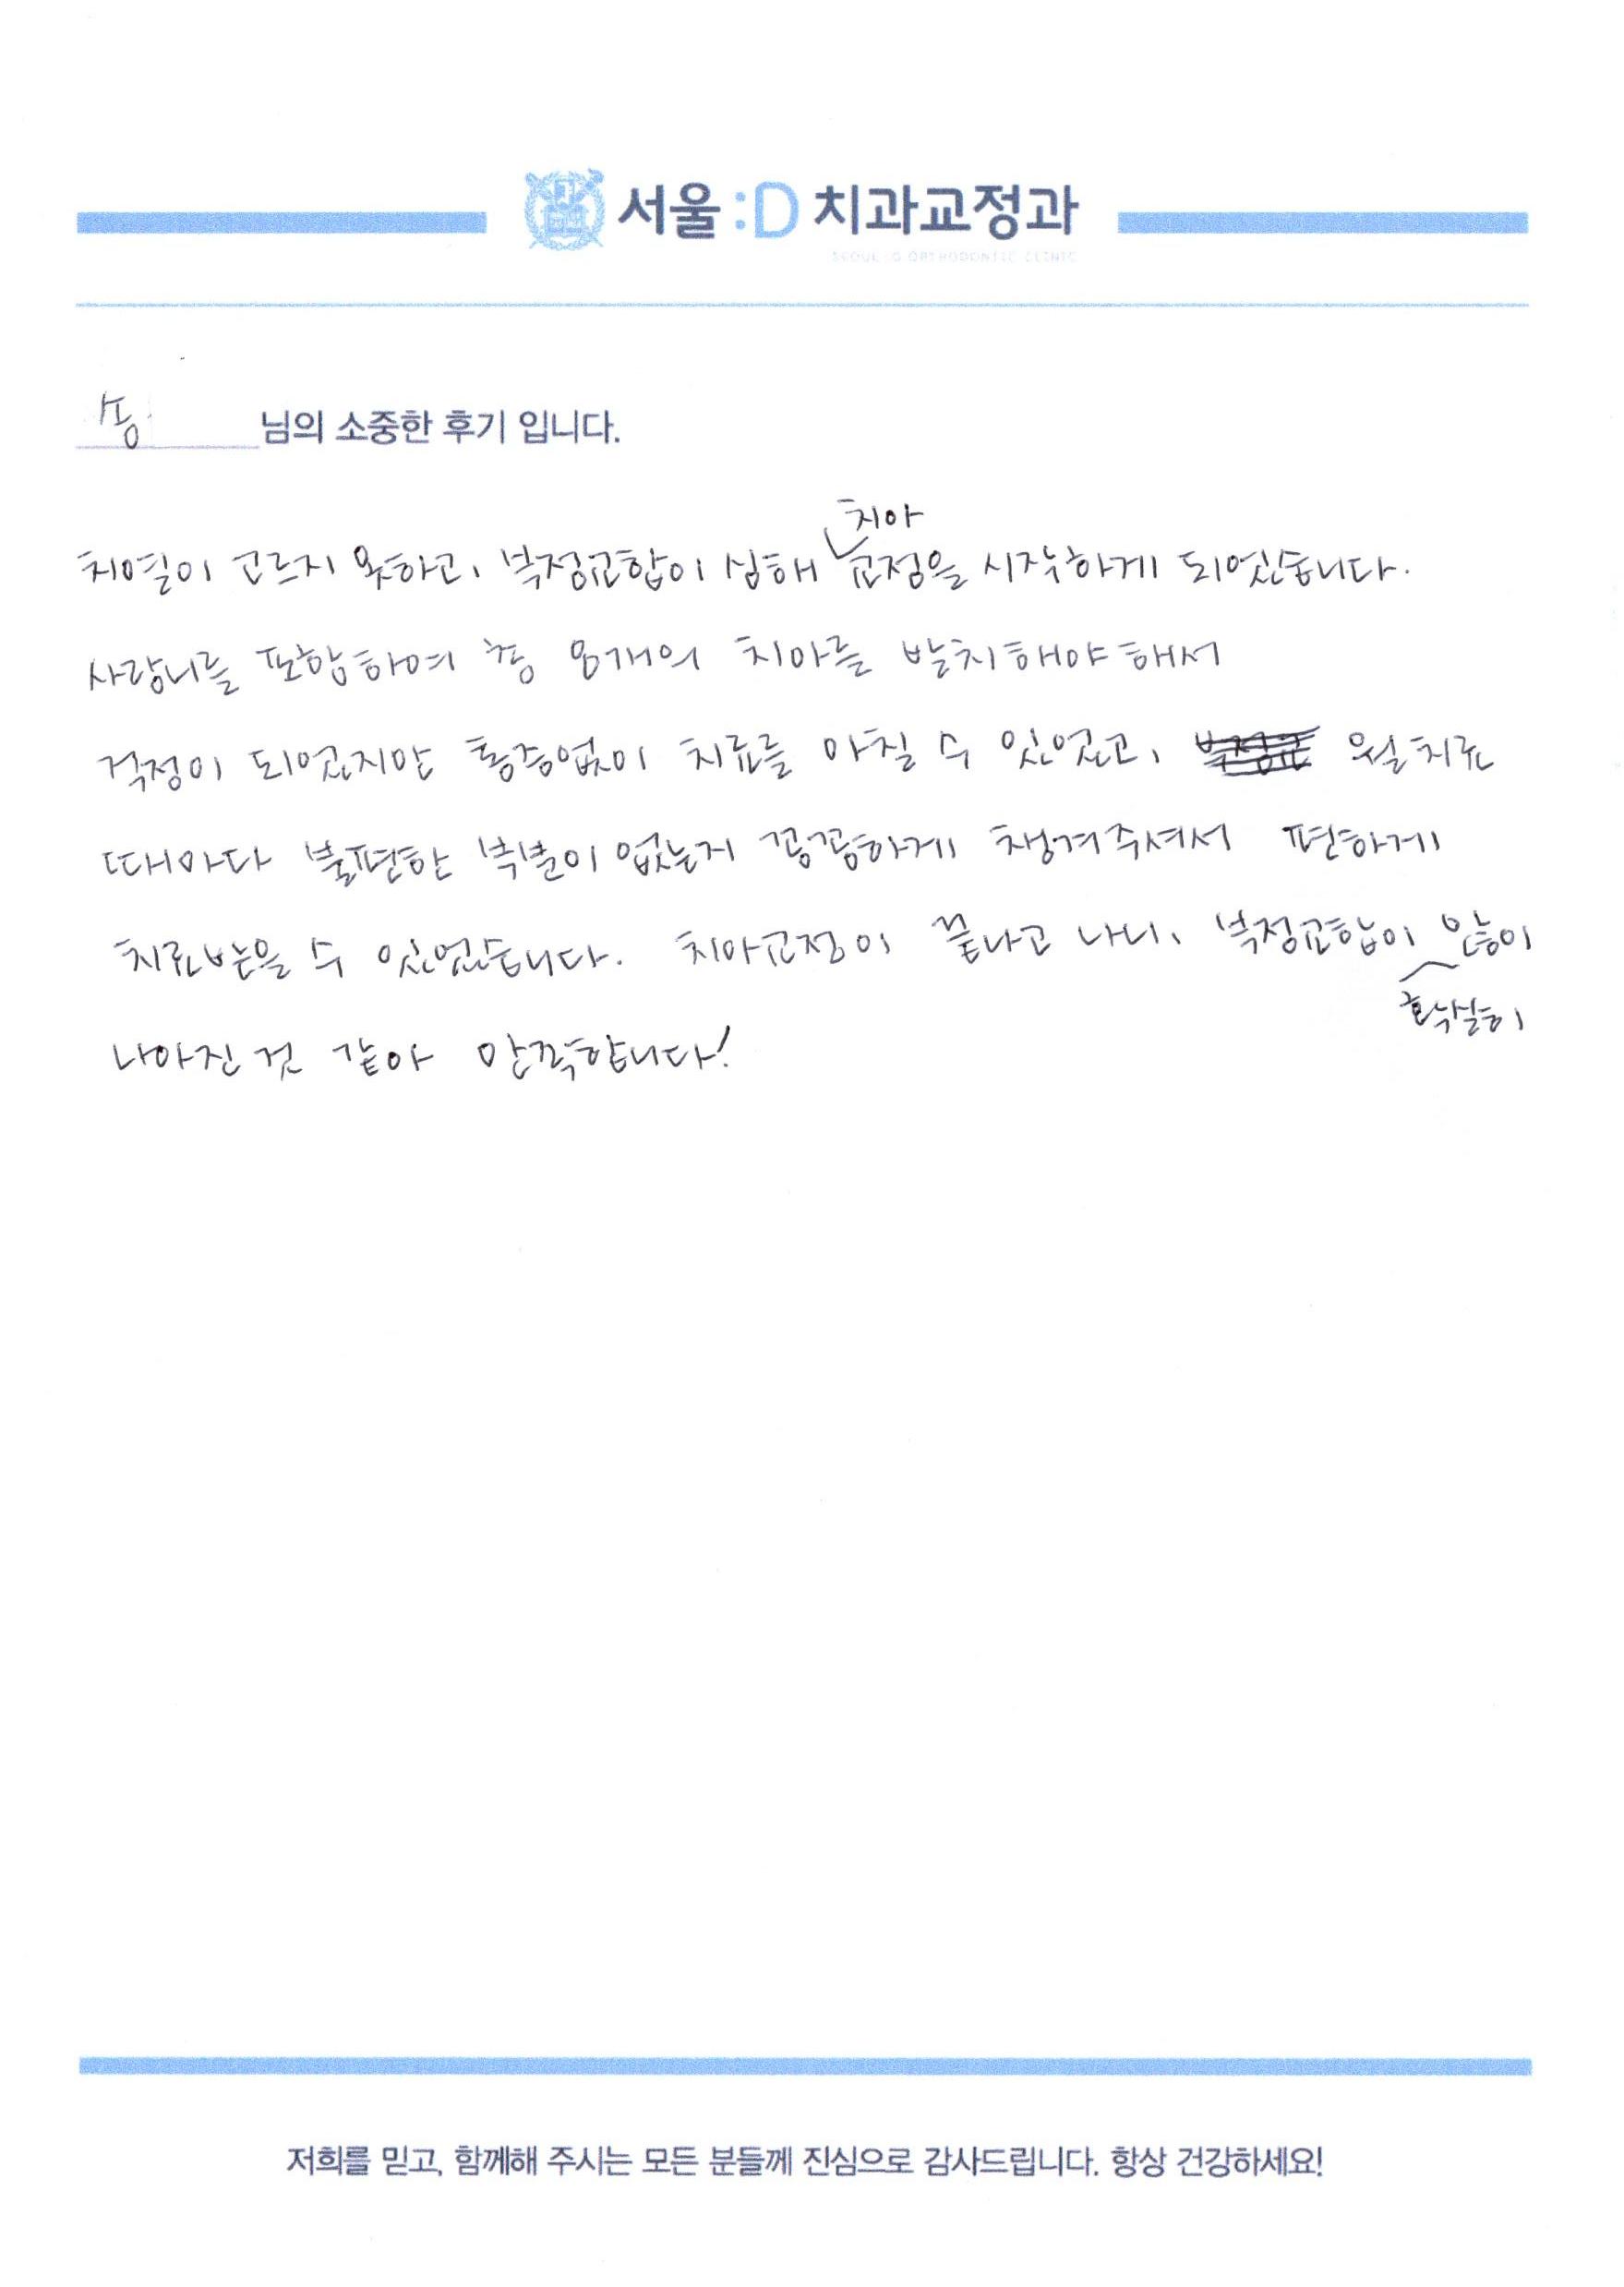 서울:D 치과교정과
SEOUL :D ORTHODONTIC CLINIC
송 님의 소중한 후기 입니다.
치열이 고르지 못하고, 부정교합이 심해 치아 교정을 시작하게 되었습니다.
사랑니를 포함하여 총 8개의 치아를 발치해야 해서
걱정이 되었지만 통증없이 치료를 마칠 수 있었고, 월치료
때마다 불편한 부분이 없는지 꼼꼼하게 챙겨주셔서 편하게
치료받을 수 있었습니다. 치아교정이 끝나고 나니, 부정교합이 확실히 많이
나아진 것 같아 만족합니다!
저희를 믿고, 함께해 주시는 모든 분들께 진심으로 감사드립니다. 항상 건강하세요!